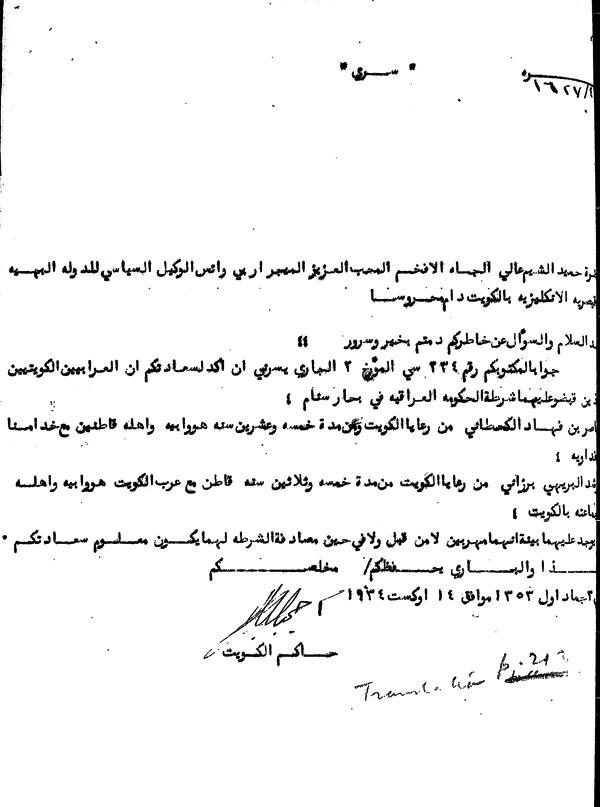 " ســري "
نمره
٤/١٦٢٧
حضرة حميد الشيم عالي الجاه الافخم المحب العزيز الميجر ار بي واتس الوكيل السياسي للدوله البهيه
القيصريه الانكليزيه بالكويت دام محروســا
بعد السلام والسؤال عن خاطركم دمتم بخير وسرور
جوابا لمكتوبكم رقم ٢٣٤ سي المؤرخ ٢ الجاري يسرني ان اكد لسعادتكم ان العرابيين الكويتيين
الذين قبضو عليهما شرطة الحكومه العراقيه في بحار سنام
ناصر بن فهاد الكحطاني من رعايا الكويت ومن مدة خمسه وعشرين سنه هو وابيه واهله قاطنين مع خدامنا
الفداريه
البريهي برزاني من رعايا الكويت من مدة خمسه وثلاثين سنه قاطن مع عرب الكويت هو وابيه واهلــه
وجماعته بالكويت
يوجد عليهما بينة انهما مهربين لا من قبل ولا في حين مصادفة الشرطه لهما يكــون معلــوم سعادتكــم
هـــذا والبــاري يحــفظكم/ مخلصــــكم
جماد اول ١٣٥٣ موافق ١٤ اوكست ١٩٣٤
حــاكم الكــويت
Translation